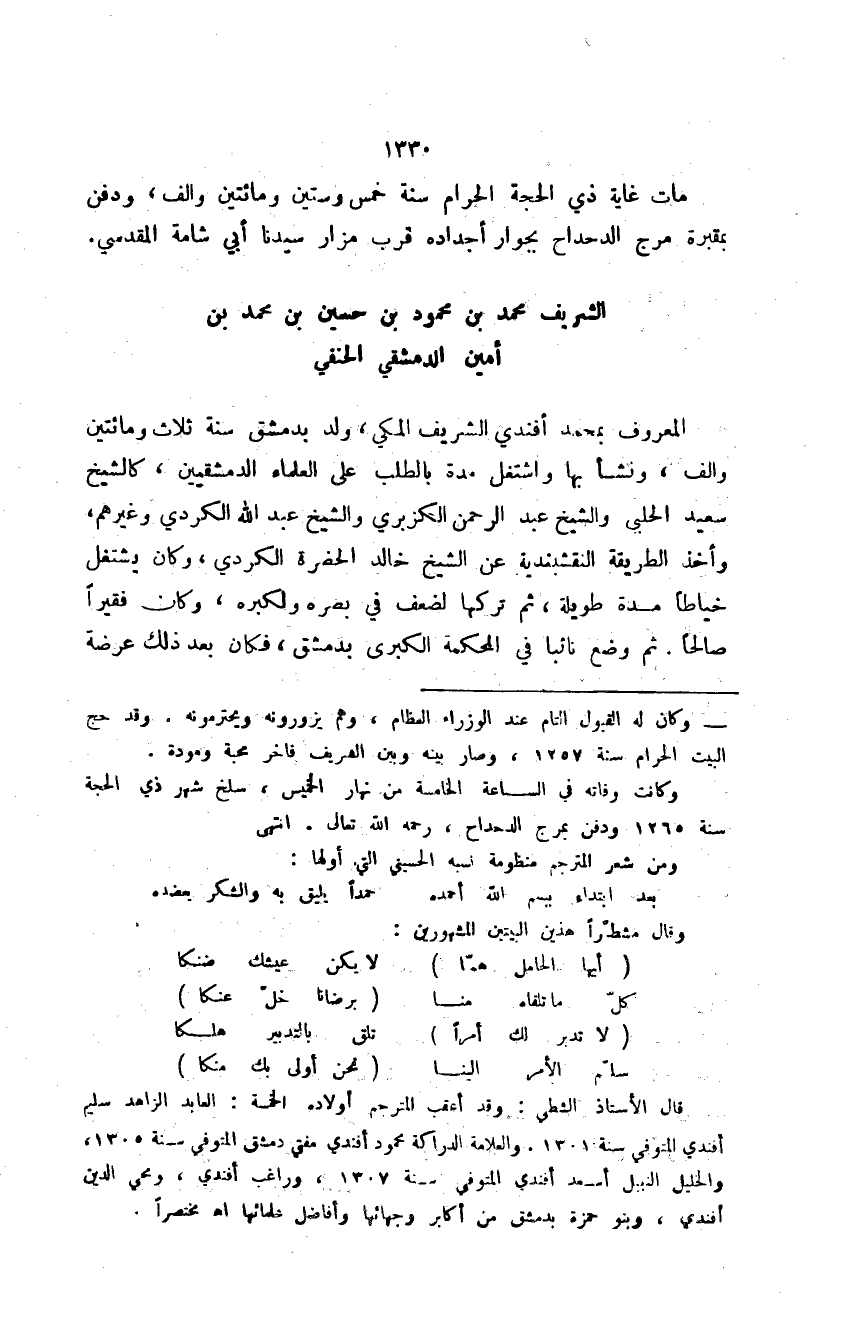 ١٣٣٠
مات غاية ذي الحجة الحرام سنة خمس وستين ومائتين والف ، ودفن
بمقبرة مرج الدحداح بجوار أجداده قرب مزار سيدنا أبي شامة المقدسي.
الشريف محمد بن محمود بن حسين بن محمد بن
أمين الدمشقي الحنفي
المعروف بمحمد أفندي الشريف المكي ، ولد بدمشق سنة ثلاث ومائتين
والف ، ونشأ بها واشتغل مدة بالطلب على العلماء الدمشقيين ، كالشيخ
سعيد الحلبي والشيخ عبد الرحمن الكزبري والشيخ عبد الله الكردي وغيرهم،
وأخذ الطريقة النقشبندية عن الشيخ خالد الحضرة الكردي ، وكان يشتغل
خياطاً مدة طويلة ، ثم تركها لضعف في بصره ولكبره ، وكان فقيراً
صالحاً . ثم وضع نائبا في المحكمة الكبرى بدمشق ، فكان بعد ذلك عرضة
— وكان له القبول التام عند الوزراء العظام ، وهم يزورونه ويحترمونه . وقد حج
البيت الحرام سنة ١٢٥٧ ، وصار بينه وبين الشريف فاخر محبة ومودة .
وكانت وفاته في الساعة الخامسة من نهار الخميس ، سلخ شهر ذي الحجة
سنة ١٢٦٥ ودفن بمرج الدحداح ، رحمه الله تعالى . انتهى
ومن شعر المترجم منظومة نسبه الحسيني التي أولها :
بعد ابتداء ببسم الله أحمده حمداً يليق به والشكر يعضده
وقال مشطّراً هذين البيتين المشهورين :
( أيها الحامل همّا ) لا يكن عيشك ضنكا
كلّ ما تلقاه منا ( برضانا خلّ عنكا )
( لا تدبر لك أمراً ) تلق بالتدبير هلكا
سلّم الأمر الينا ( نحن أولى بك منكا )
قال الأستاذ الشطي : وقد أعقب المترجم أولاده الخمسة : العابد الزاهد سليم
أفندي المتوفي سنة ١٣٠١ . والعلامة الدراكة محمود أفندي مفتي دمشق المتوفي سنة ١٣٠٥،
والجليل النبيل أسعد أفندي المتوفي سنة ١٣٠٧ ، وراغب أفندي ، ومحي الدين
أفندي ، وبنو حمزة بدمشق من أكابر وجهائها وأفاضل علمائها اه مختصراً .